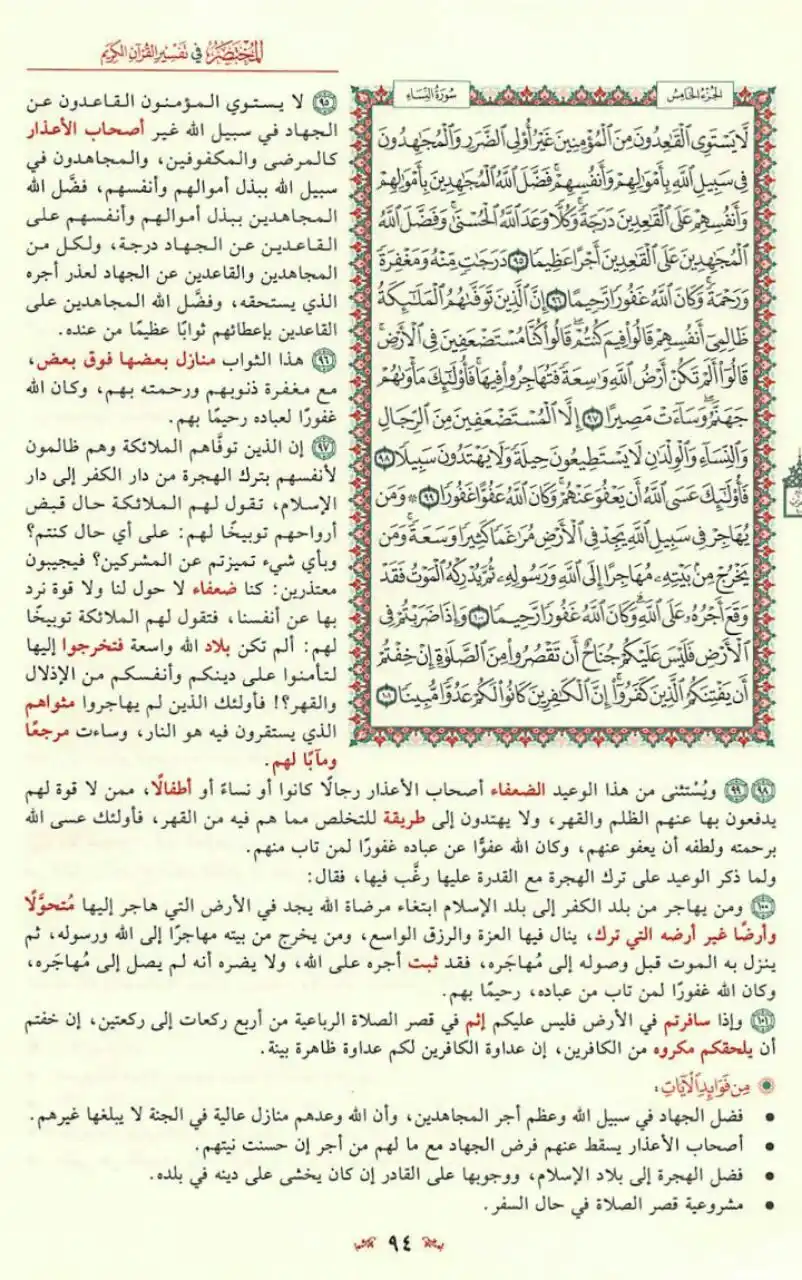 المختصر في تفسير القرآن الكريم
الجزء الخامس
سورة النساء
لَّا يَسْتَوِي الْقَاعِدُونَ مِنَ الْمُؤْمِنِينَ غَيْرُ أُولِي الضَّرَرِ وَالْمُجَاهِدُونَ
فِي سَبِيلِ اللَّهِ بِأَمْوَالِهِمْ وَأَنفُسِهِمْ ۚ فَضَّلَ اللَّهُ الْمُجَاهِدِينَ بِأَمْوَالِهِمْ
وَأَنفُسِهِمْ عَلَى الْقَاعِدِينَ دَرَجَةً ۚ وَكُلًّا وَعَدَ اللَّهُ الْحُسْنَىٰ ۚ وَفَضَّلَ اللَّهُ
الْمُجَاهِدِينَ عَلَى الْقَاعِدِينَ أَجْرًا عَظِيمًا ٩٥ دَرَجَاتٍ مِّنْهُ وَمَغْفِرَةً
وَرَحْمَةً ۚ وَكَانَ اللَّهُ غَفُورًا رَّحِيمًا ٩٦ إِنَّ الَّذِينَ تَوَفَّاهُمُ الْمَلَائِكَةُ
ظَالِمِي أَنفُسِهِمْ قَالُوا فِيمَ كُنتُمْ ۖ قَالُوا كُنَّا مُسْتَضْعَفِينَ فِي الْأَرْضِ ۚ
قَالُوا أَلَمْ تَكُنْ أَرْضُ اللَّهِ وَاسِعَةً فَتُهَاجِرُوا فِيهَا ۚ فَأُولَٰئِكَ مَأْوَاهُمْ
جَهَنَّمُ ۖ وَسَاءَتْ مَصِيرًا ٩٧ إِلَّا الْمُسْتَضْعَفِينَ مِنَ الرِّجَالِ
وَالنِّسَاءِ وَالْوِلْدَانِ لَا يَسْتَطِيعُونَ حِيلَةً وَلَا يَهْتَدُونَ سَبِيلًا ٩٨
فَأُولَٰئِكَ عَسَى اللَّهُ أَن يَعْفُوَ عَنْهُمْ ۚ وَكَانَ اللَّهُ عَفُوًّا غَفُورًا ٩٩ ۞ وَمَن
يُهَاجِرْ فِي سَبِيلِ اللَّهِ يَجِدْ فِي الْأَرْضِ مُرَاغَمًا كَثِيرًا وَسَعَةً ۚ وَمَن
يَخْرُجْ مِن بَيْتِهِ مُهَاجِرًا إِلَى اللَّهِ وَرَسُولِهِ ثُمَّ يُدْرِكْهُ الْمَوْتُ فَقَدْ
وَقَعَ أَجْرُهُ عَلَى اللَّهِ ۗ وَكَانَ اللَّهُ غَفُورًا رَّحِيمًا ١٠٠ وَإِذَا ضَرَبْتُمْ فِي
الْأَرْضِ فَلَيْسَ عَلَيْكُمْ جُنَاحٌ أَن تَقْصُرُوا مِنَ الصَّلَاةِ إِنْ خِفْتُمْ
أَن يَفْتِنَكُمُ الَّذِينَ كَفَرُوا ۚ إِنَّ الْكَافِرِينَ كَانُوا لَكُمْ عَدُوًّا مُّبِينًا ١٠١
٩٥ لا يستوي المؤمنون القاعدون عن
الجهاد في سبيل الله غير أصحاب الأعذار
كالمرضى والمكفوفين، والمجاهدون في
سبيل الله ببذل أموالهم وأنفسهم، فضَّل الله
المجاهدين ببذل أموالهم وأنفسهم على
القاعدين عن الجهاد درجة، ولكل من
المجاهدين والقاعدين عن الجهاد لعذر أجره
الذي يستحقه، وفضَّل الله المجاهدين على
القاعدين بإعطائهم ثوابًا عظيمًا من عنده.
٩٦ هذا الثواب منازل بعضها فوق بعض،
مع مغفرة ذنوبهم ورحمته بهم، وكان الله
غفورًا لعباده رحيمًا بهم.
٩٧ إن الذين توفَّاهم الملائكة وهم ظالمون
لأنفسهم بترك الهجرة من دار الكفر إلى دار
الإسلام، تقول لهم الملائكة حال قبض
أرواحهم توبيخًا لهم: على أي حال كنتم؟
وبأي شيء تميزتم عن المشركين؟ فيجيبون
معتذرين: كنا ضعفاء لا حول لنا ولا قوة نرد
بها عن أنفسنا، فتقول لهم الملائكة توبيخًا
لهم: ألم تكن بلاد الله واسعة فتخرجوا إليها
لتأمنوا على دينكم وأنفسكم من الإذلال
والقهر؟! فأولئك الذين لم يهاجروا مثواهم
الذي يستقرون فيه هو النار، وساءت مرجعًا
ومآبًا لهم.
٩٨ ٩٩ ويُستثنى من هذا الوعيد الضعفاء أصحاب الأعذار رجالًا كانوا أو نساءً أو أطفالًا، ممن لا قوة لهم
يدفعون بها عنهم الظلم والقهر، ولا يهتدون إلى طريقة للتخلص مما هم فيه من القهر، فأولئك عسى الله
برحمته ولطفه أن يعفو عنهم، وكان الله عفوًّا عن عباده غفورًا لمن تاب منهم.
ولما ذكر الوعيد على ترك الهجرة مع القدرة عليها رغَّب فيها، فقال:
١٠٠ ومن يهاجر من بلد الكفر إلى بلد الإسلام ابتغاء مرضاة الله يجد في الأرض التي هاجر إليها مُتحوَّلًا
وأرضًا غير أرضه التي ترك، ينال فيها العزة والرزق الواسع، ومن يخرج من بيته مهاجرًا إلى الله ورسوله، ثم
ينزل به الموت قبل وصوله إلى مُهاجَره، فقد ثبت أجره على الله، ولا يضره أنه لم يصل إلى مُهاجَره،
وكان الله غفورًا لمن تاب من عباده، رحيمًا بهم.
١٠١ وإذا سافرتم في الأرض فليس عليكم إثم في قصر الصلاة الرباعية من أربع ركعات إلى ركعتين، إن خفتم
أن يلحقكم مكروه من الكافرين، إن عداوة الكافرين لكم عداوة ظاهرة بينة.
من فوائد الآيات:
• فضل الجهاد في سبيل الله وعظم أجر المجاهدين، وأن الله وعدهم منازل عالية في الجنة لا يبلغها غيرهم.
• أصحاب الأعذار يسقط عنهم فرض الجهاد مع ما لهم من أجر إن حسنت نيتهم.
• فضل الهجرة إلى بلاد الإسلام، ووجوبها على القادر إن كان يخشى على دينه في بلده.
• مشروعية قصر الصلاة في حال السفر.
٩٤